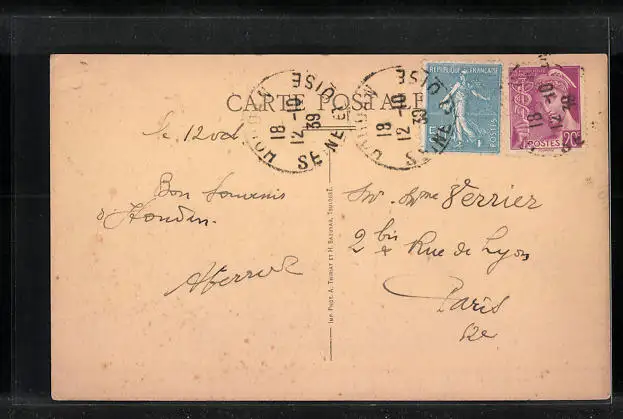 CARTE POSTALE
REPUBLIQUE FRANÇAISE
POSTES
POSTES 20c
HOUDAN
18 - 10
12 - 10
39
SEINE ET OISE
Le 12 oct
Bon Souvenir
d'Houdan.
Mr. Mme Verrier
2 bis Rue de Lyon
Paris
12e
IMP. PHOT. A. THIRIAT ET H. BASUYAU, TOULOUSE.